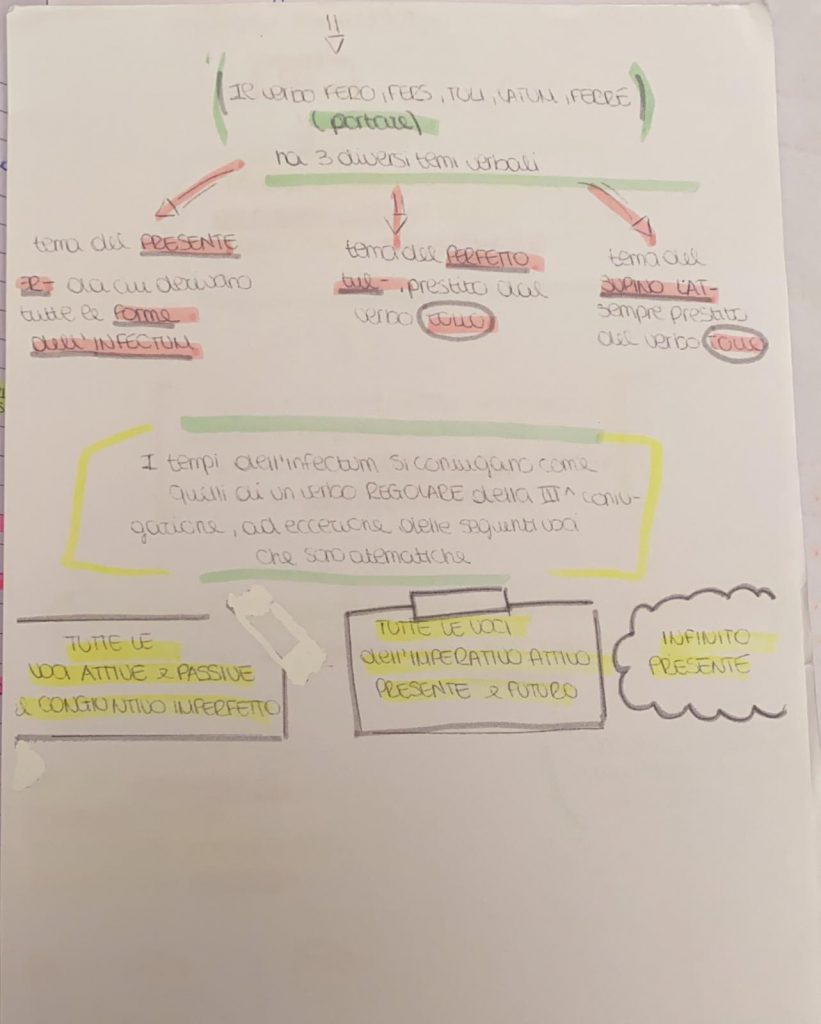 Il verbo FERO, FERS, TULI, LATUM, FERRE
(portare)
ha 3 diversi temi verbali
tema del PRESENTE
-R- da cui derivano
tutte le forme
dell'INFECTUM
tema del PERFETTO
tul-, prestito dal
verbo TOLLO
tema del
SUPINO LAT-
sempre prestito
del verbo TOLLO
I tempi dell'infectum si coniugano come
quelli di un verbo REGOLARE della III^ coniu-
gazione, ad eccezione delle seguenti voci
che sono atematiche
TUTTE LE
VOCI ATTIVE e PASSIVE
CONGIUNTIVO IMPERFETTO
TUTTE LE VOCI
dell'IMPERATIVO ATTIVO
PRESENTE e FUTURO
INFINITO
PRESENTE